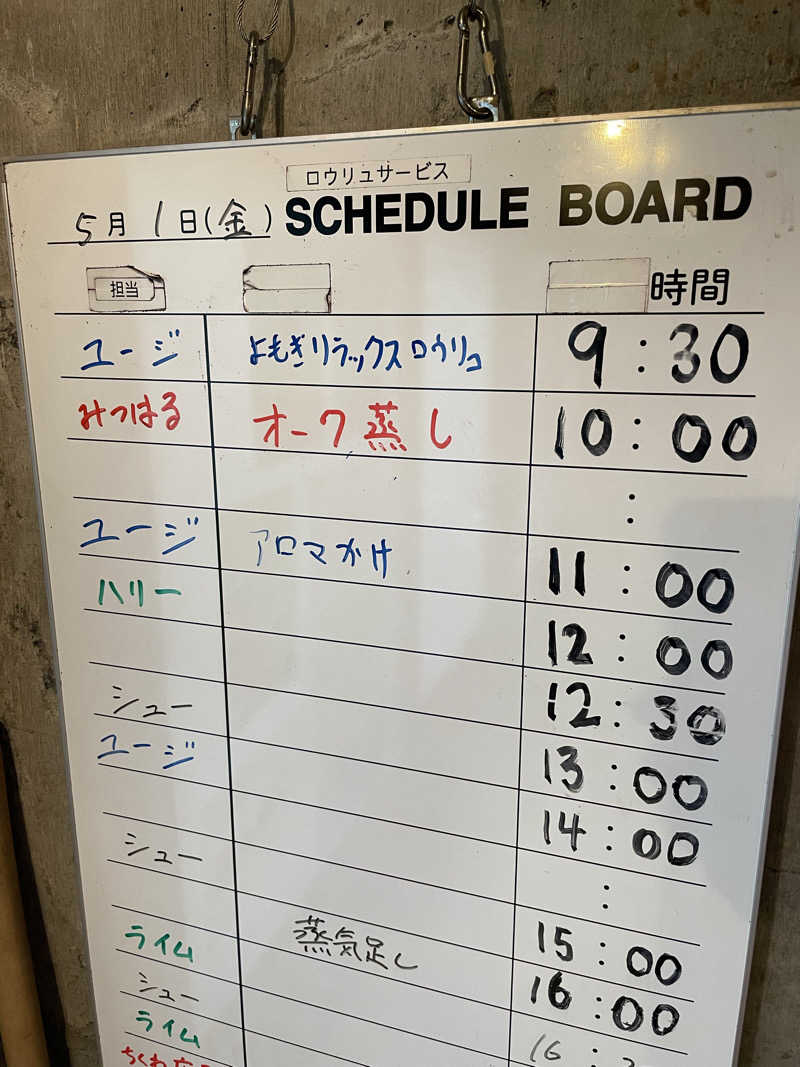 ロウリュサービス
5月 1日(金) SCHEDULE BOARD
担当 時間
ユージ よもぎリラックスロウリュ 9:30
みつはる オーク蒸し 10:00
:
ユージ アロマかけ 11:00
ハリー 12:00
12:30
シュー 13:00
ユージ 14:00
:
シュー 15:00
16:00
ライム 蒸気足し 16:
シュー
ライム